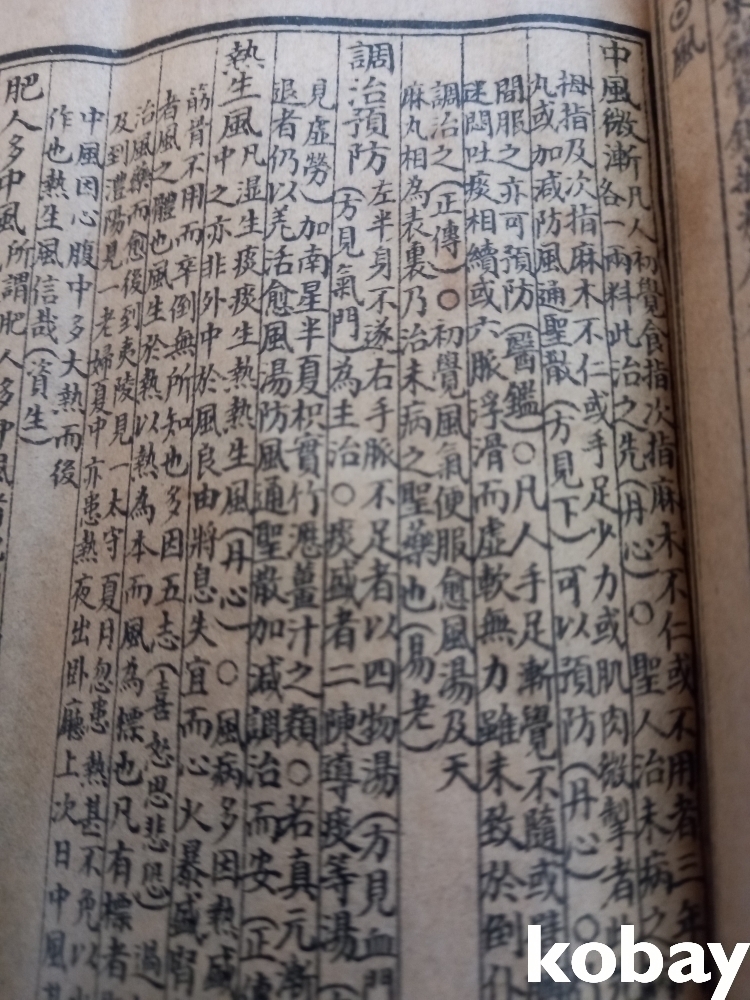 風
中風微漸
凡人初覺食指次指麻木不仁或不用者三年
各一兩料此治之先(丹心)○聖人治未病之
拇指及次指麻木不仁或手足少力或肌肉微掣者此
丸或加減防風通聖散(方見下)可以預防(丹心)○
間服之亦可預防(醫鑑)○凡人手足漸覺不隨或臂
迷悶吐痰相續或六脈浮滑而虛軟無力雖未致於倒仆
調治之(正傳)○初覺風氣便服愈風湯及天
麻丸相為表裏乃治未病之聖藥也(易老)
調治預防
左半身不遂右手脈不足者以四物湯(方見血門
(方見氣門)為主治○痰或者二陳導痰等湯(
見虛勞)加南星半夏枳實竹瀝薑汁之類○若真元漸
退者仍以羌活愈風湯防風通聖散加減調治而安(正傳
熱生風
凡湿生痰痰生熱熱生風(丹心)○風病多因熱盛
中之亦非外中於風良由將息失宜而心火暴盛腎
筋骨不用而卒倒無所知也多因五志(喜怒思悲恐)過
者風之體也風生於熱以熱為本而風為標也凡有標者
治風藥而愈後到夷陵見一太守夏月忽患熱甚不免以
及到澧陽見一老婦夏中亦患熱夜出臥廳上次日中風
中風因心腹中多大熱而後
作也熱生風信哉(資生)
肥人多中風
所謂肥人多中風者
kobay